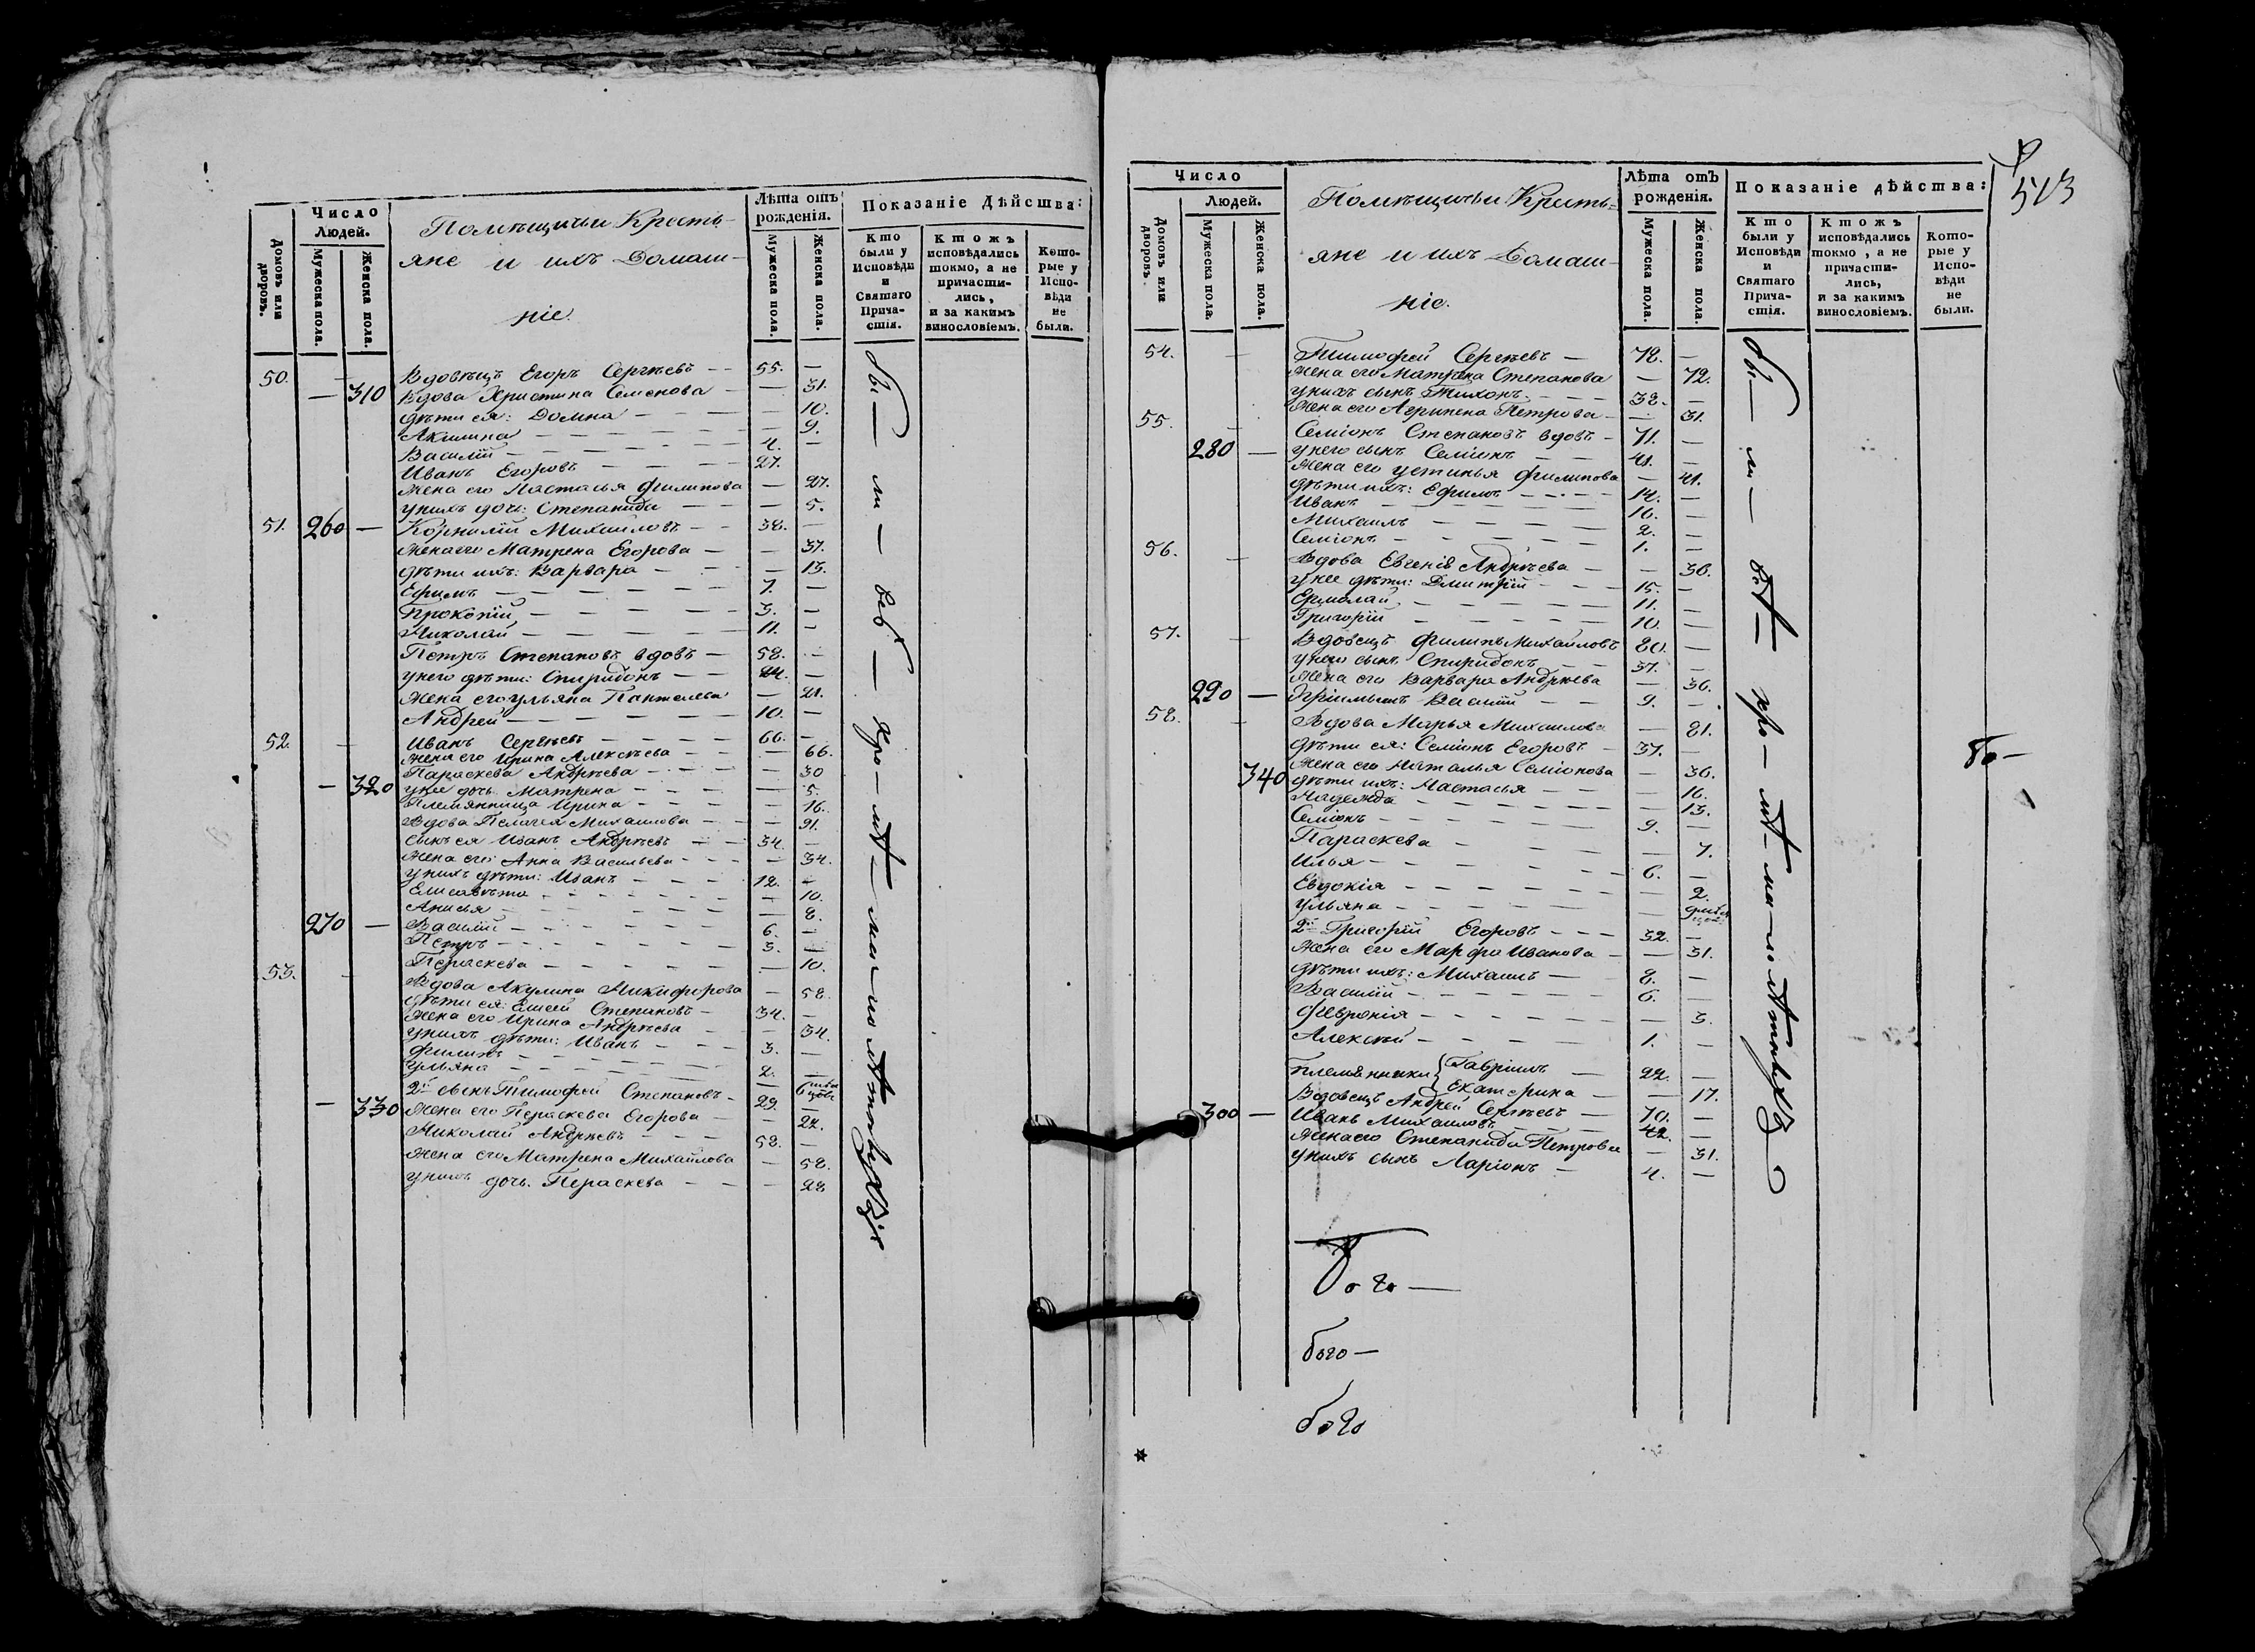 Число
Людей.
Домовъ или дворовъ.
Мужеска пола.
Женска пола.
Помѣщичьи Крестья-
яне и ихъ Домаш-
ніе.
Лѣта отъ рожденія.
Мужеска пола.
Женска пола.
Показаніе Дѣйства:
Кто были у Исповѣди и Святаго Прича-стія.
Ктожъ исповѣдались токмо, а не причасти-лись, и за какимъ винословіемъ.
Кото-рые у Испо-вѣди не были.
50. — Вдовецъ Егоръ Сергѣевъ — 55. —
— 310 Вдова Христина Семенова — — 31.
дѣти ея: Домна — — 10.
Акилина — — 9.
Василій — 4. —
Иванъ Егоровъ — 27. —
Жена его Настасья Филипова — 27.
у нихъ дочь: Степанида — — 5.
51. 260 — Корнилій Михайловъ — 38. —
Жена его Матрена Егорова — — 37.
дѣти ихъ: Варвара — — 13.
Ефимъ — 7. —
Прокопій — 3. —
Николай — 11. —
Петръ Степановъ вдовъ — 58. —
у него дѣти: Спиридонъ — 24. —
Жена его Ульяна Пантелева — 21.
Андрей — 10. —
52. — Иванъ Сергѣевъ — 66. —
Жена его Ирина Алексѣева — — 66.
Параскева Андрѣева — — 30
— 320 у нее дочь Матрена — — 5.
Племянница Ирина — — 16.
Вдова Пелагея Михаилова — — 91.
сынъ ея Иванъ Андрѣевъ — 34. —
Жена его Анна Васильева — — 34.
у нихъ дѣти: Иванъ — 12. —
Елисавѣта — — 10.
Анисья — — 8.
270 — Василій — 6. —
Петръ — 3. —
Пераскева — — 10.
53. — Вдова Акулина Никифорова — 58.
дѣти ея: Елисей Степановъ — 34. —
Жена его Ирина Андрѣева — — 34.
у нихъ дѣти: Иванъ — 3. —
Филипъ — 2. —
Ульяна — — 6
2й сынъ Тимофей Степановъ — 29. —
— 330 Жена его Пераскева Егорова — — 22.
Николай Андрѣевъ — 58. —
Жена его Матрена Михайлова — 58.
у нихъ дочь Пераскева — — 28
бы — ли —
513
Число
Людей.
Домовъ или дворовъ.
Мужеска пола.
Женска пола.
Помѣщичьи Крестья-
яне и ихъ Домаш-
ніе.
Лѣта отъ рожденія.
Мужеска пола.
Женска пола.
Показаніе дѣйства:
Кто были у Исповѣди и Святаго Прича-стія.
Ктожъ исповѣдались токмо, а не причасти-лись, и за какимъ винословіемъ.
Кото-рые у Испо-вѣди не были.
54. — Тимофей Сергѣевъ — 78. —
Жена его Матрена Степанова — 72.
у нихъ сынъ Тихонъ — 38. —
Жена его Агрипена Петрова — — 31.
55. — Семіонъ Степановъ вдовъ — 71. —
280 — у него сынъ Семіонъ — 41. —
Жена его Устинья Филипова — 41.
дѣти ихъ: Ефимъ — 14. —
Иванъ — 16. —
Михаилъ — 2. —
Семіонъ — 1. —
56. — Вдова Евгенія Андрѣева — — 36.
у нее дѣти: Дмитрій — 15. —
Ермолай — 11. —
Григорій — 10. —
57. — Вдовецъ Филипъ Михайловъ 80. —
у него сынъ Спиридонъ — 37. —
Жена его Варвара Андрѣева — 36.
290 — Василій — 9. —
58. — Вдова Марья Михаилова — 81.
дѣти ея: Семіонъ Егоровъ — 37. —
340 Жена его Наталья Семіонова — 36.
дѣти ихъ: Настасья — — 16.
Надежда — — 13.
Семіонъ — 9. —
Параскева — — 7.
Илья — 6. —
Евдокія — — 2.
Ульяна —
2й Григорій Егоровъ — 32. —
Жена его Марфа Иванова — — 31.
дѣти ихъ: Михаилъ — 8. —
Василій — 6. —
Февронія — — 3.
Алексѣй — 1. —
племянники { Гавріилъ — 22. —
Екатерина — — 17.
300 — Вдовецъ Андрей Сергѣевъ — 70. —
Иванъ Михаиловъ — 42. —
Жена его Степанида Петрова — 31.
у нихъ сынъ Ларіонъ — 4. —
бы — ли —